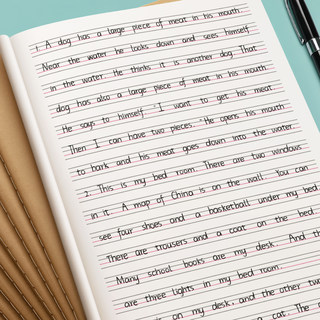 1. A dog has a large piece of meat in his mouth.
Near the water he looks down and sees himself
in the water. He thinks it is another dog. That
dog has also a large piece of meat in his mouth.
He says to himself "I want to get his meat
Then I can have two pieces." He opens his mouth
to bark and his meat goes down into the water.
2. This is my bed room. There are two windows
in it. A map of China is on the wall. You can
see four shoes and a basketball under my bed.
There are trousers and a coat on the bed.
Many school books are my desk. And th
are three lights in my bed room.
is on my desk, and the other two
a cat. The